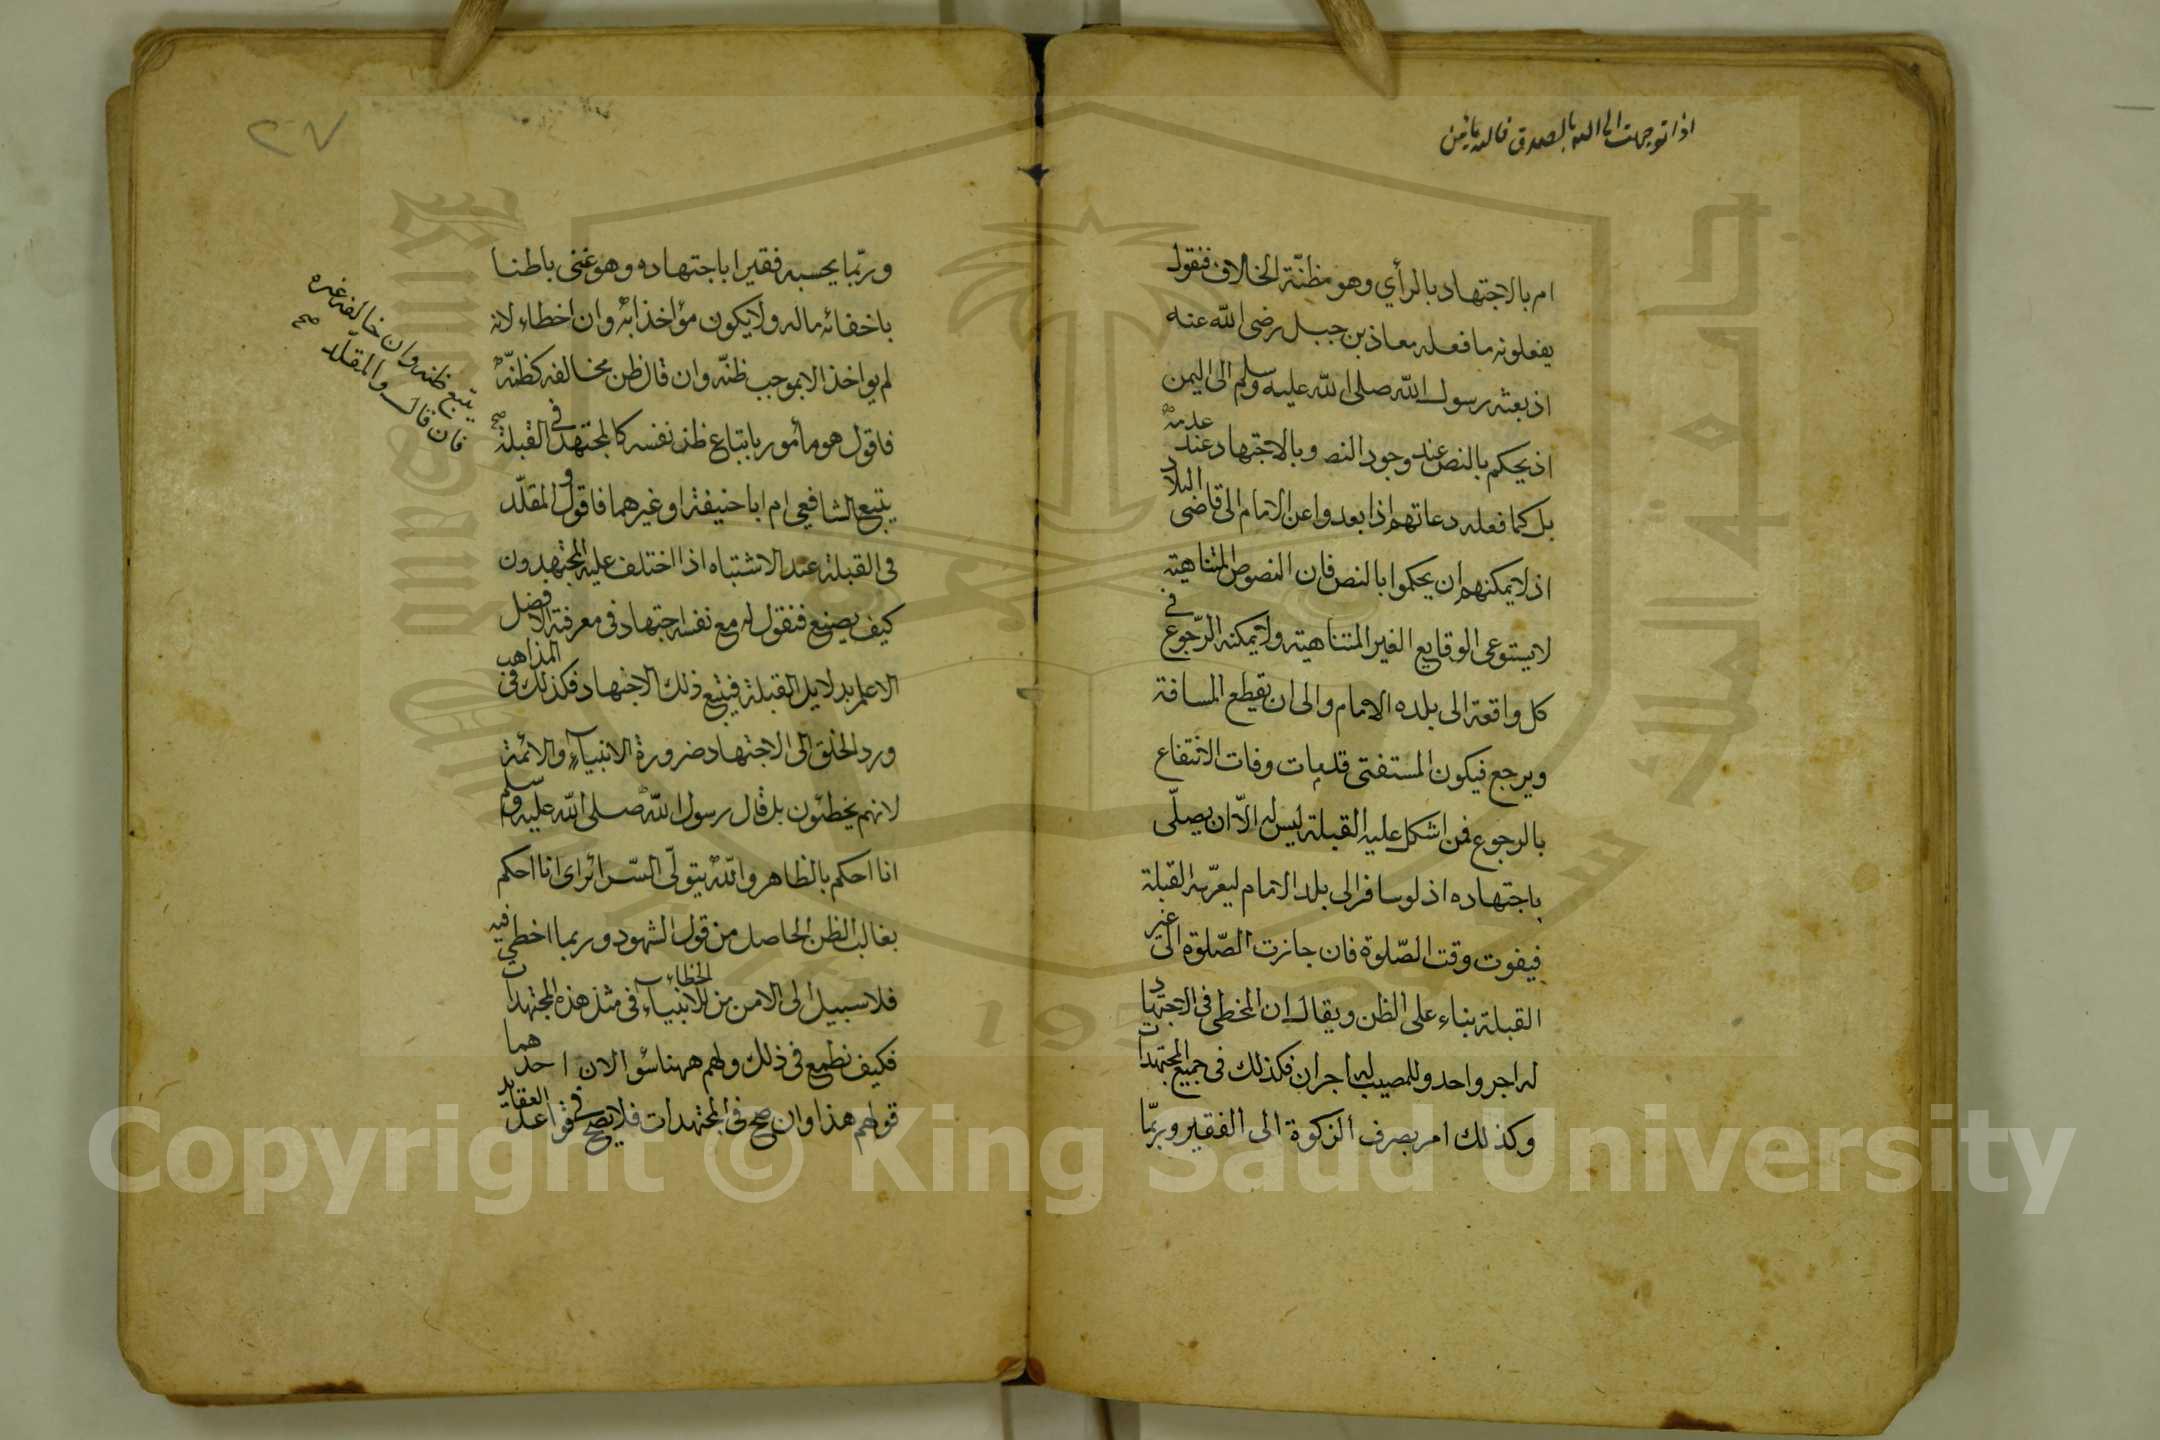 اذا توجهت الى الله بالصدق فالله
ام بالاجتهاد بالرأي وهو مظنّة الخلاف فنقول
يفعلونه ما فعله معاذ بن جبل رضى الله عنه
اذ بعثه رسول الله صلى الله عليه وسلم الى اليمن
اذ يحكم بالنص عند وجود النص وبالاجتهاد عند عدمه
بل كما فعله دعاتهم اذا بعدوا عن الامام الى قاضى البلاد
اذ لا يمكنهم ان يحكموا بالنص فان النصوص المتناهية
لا يستوعى الوقايع الغير المتناهية ولا يمكنه الرّجوع في
كل واقعة الى بلده الامام والى ان يقطع المسافة
ويرجع فيكون المستفتى قد مات وفات الانتفاع
بالرجوع فمن اشكل عليه القبلة ليس له الّا ان يصلّى
باجتهاده اذ لو سافر الى بلد الامام ليعرّبه القبلة
فيفوت وقت الصّلوة فان جازت الصّلوة الى غير
القبلة بناء على الظن ويقال ان المخطى فى الاجتهاد
له اجر واحد وللمصيب له اجران فكذلك فى جميع المجتهدات
وكذلك امر بصرف الزكوة الى الفقير وربّما
٢٧
وربّما يحسبه فقيرا باجتهاده وهو غنى باطنا
باخفائه ماله ولا يكون مؤاخذا به وان اخطاء لانه
لم يواخذ الا بموجب ظنّه وان قال ظن مخالفه كظنّه
فاقول هو مأمور باتباع ظن نفسه كالمجتهد في القبلة
يتبع ظنه وان خالفه غيره
فان قال والمقلد صح
يتبع الشافعي ام ابا حنيفة او غيرهما فاقول والمقلّد
فى القبلة عند الاشتباه اذا اختلف عليه المجتهدون
كيف يصنع فنقول له مع نفسه اجتهاد فى معرفة الافضل
الاعلم بدلايل القبلة فيتبع ذلك الاجتهاد فكذلك فى المذاهب
ورد الخلق الى الاجتهاد ضرورة الانبياء والائمة
لانهم يخطئون بل قال رسول الله صلى الله عليه وسلم
انا احكم بالظاهر والله يتولّى السّرائر اى انا احكم
بغالب الظن الحاصل من قول الشهود وربما اخطى فيه
فلا سبيل الى الامن من الخطاء للانبياء فى مثل هذه المجتهدات
فكيف نطمع فى ذلك ولهم ههنا سؤالان احدهما
قولهم هذا وان صح فى المجتهدات فلا يصح في قواعد العقايد
Copyright © King Saud University